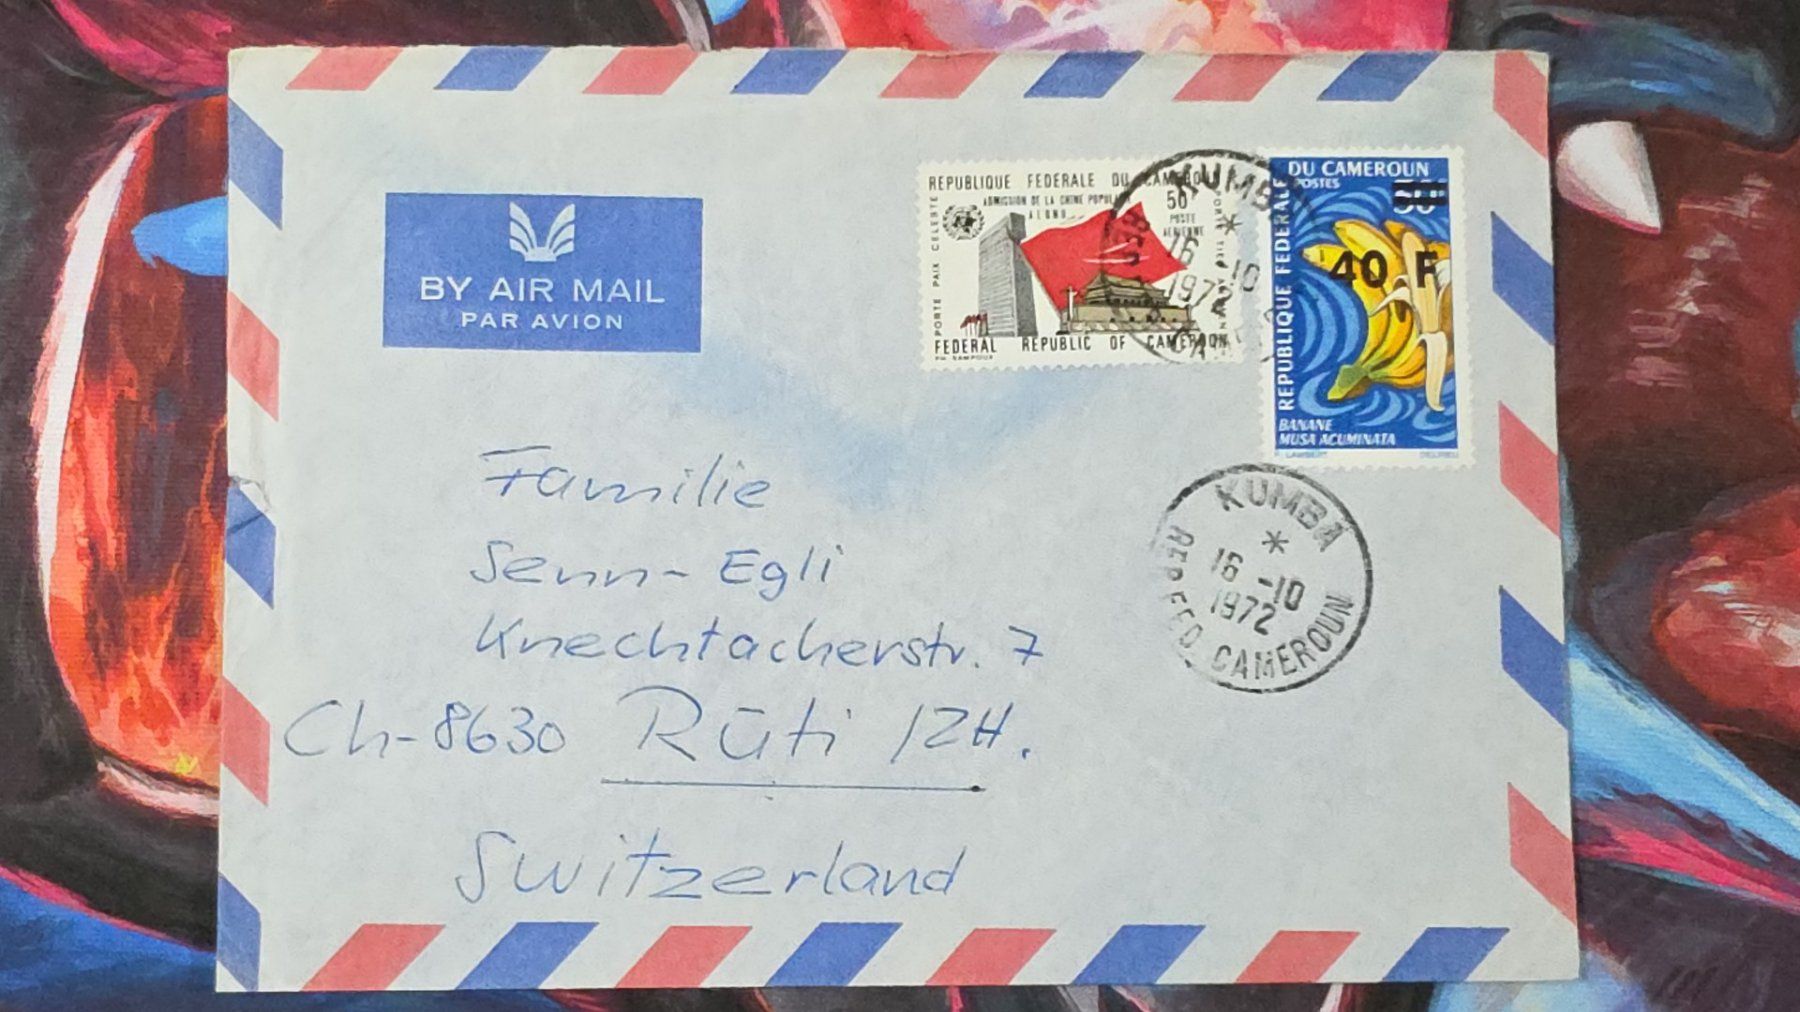 BY AIR MAIL
PAR AVION
REPUBLIQUE FEDERALE DU CAMEROUN
ADMISSION DE LA CHINE POPULAIRE
A L'ONU
50F
POSTE
AERIENNE
PORTE PAIX CELESTE
FEDERAL REPUBLIC OF CAMEROON
PH. SAMPOUX
KUMBA
16 -10
1972
REPUBLIQUE FEDERALE
DU CAMEROUN
POSTES
40 F
BANANE
MUSA ACUMINATA
LAMBERT
DELRIEU
KUMBA
16 -10
1972
REP. FED. CAMEROUN
Familie
Senn-Egli
Knechtacherstr. 7
Ch-8630 Rūti /ZH.
Switzerland